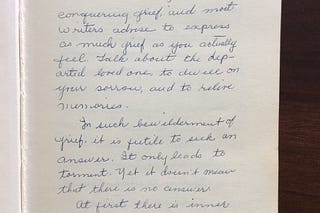 conquering grief, and most
writers advise to express
as much grief as you actually
feel. Talk about the dep-
arted loved one, to dwell on
your sorrow, and to relive
memories.
In such bewilderment of
grief, it is futile to seek an
answer. It only leads to
torment. Yet it doesn't mean
that there is no answer
At first there is inner